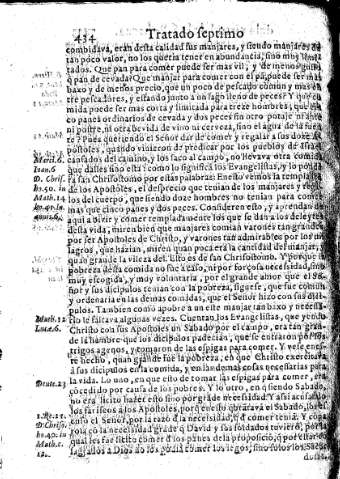 434 Tratado septimo
combidava, eran desta calidad sus manjares, y siendo manjares de
tan poco valor, no los queria tener en abundancia, sino muy
tados. Que pan para comer puede ser mas vil, y de menos gusto
q̃ pan de cevada? Que manjar para comer con el pã, puede ser mas
baxo y de menos precio, que un poco de pescado comun y mas
tre pescadores, y estando junto a un lago lleno de peces? Y que co
mida puede ser mas corta y limitada para treze hombres, que cin
co panes ordinarios de cevada y dos peces sin otro potaje ni
ni postre, ni otra bevida de vino ni cerveza, sino el agua de la fuen
te? Pues queriendo el Señor dar de comer y regalar a sus doze A-
postoles, quando vinieron de predicar por los pueblos de
Marci.6. cansados del camino, y los saco al campo, no llevava otra comida
Ioan.6 que dalles sino esta: como lo significã los Evangelistas, y lo ponde
D. Chris. ra san Chrisostomo por estas palabras: En esto vemos la templança
ho.50. in de los Apostoles, el desprecio que tenian de los manjares y rega-
Math.14 los del cuerpo, que siendo doze hombres no tenian para comer
mas que cinco panes y dos peces. Consideren esto, y aprendan de
aqui a bivir y comer templadamente los que se dan a los deleytes
desta vida, miren bien que manjares comian varones tan grandes
por ser Apostoles de Christo, y varones tan admirables por los mi
lagros, que hazian, miren quan poca era la cantidad del manjar, y
quan grande la vileza del. Esto es de san Chrisostomo. Y porque
pobreza desta comida no fue a caso, ni por forçosa necesidad, sino
muy escogida, y muy voluntaria, por el grande amor que el Se-
ñor y sus dicipulos tenian con la pobreza, siguese, que fue comun
y ordenaria en las demas comidas, que el Señor hizo con sus dici-
pulos. Tambien como a pobre a un este manjar tan baxo y necessa
Math.12 rio le faltava algunas vezes. Cuentan los Evangelistas, que yendo
Luca.6. Christo con sus Apostoles un Sabado por el campo, era tan gran-
de la hambre que los dicipulos padecian, que se entraron por los
trigos agenos, y tomaron de las espigas para comer. Y vese en es-
te hecho, quan grande fue la pobreza, en que Christo exercitava
a sus dicipulos en la comida, y en las demas cosas necessarias para
la vida. Lo uno, en que esto de tomar las espigas para comer, era
Deute.23 concedido por causa de los pobres. Y lo otro, en q̃ siendo Sabado,
no era licito hazer esto sino por grãde necessidad. Y assi acusando
los fariseos a los Apostoles, porq̃ en esto quebrãtavã el Sabado, los es-
1.Re.21. cuso el Señor, por la razõ d̃ la necessidad, q̃ d̃ comer teniã. Y cõpa
D.Chris. rola cõ la necessidad grãde q̃ David y sus soldados tuvierõ, por la
ho.40. in qual les fue licito comer d̃ los panes de la proposiciõ, q̃ por estar cõ
Math.c. sagrados a Dios no los podiã comer los legos, sino solos los
12.